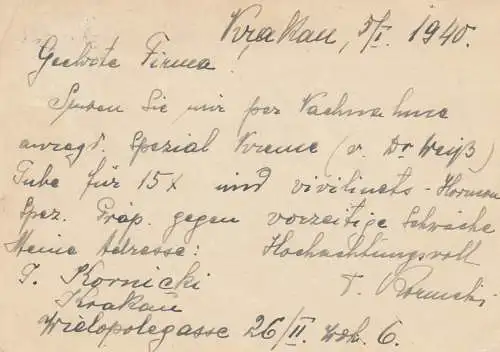 Krakau, 5/I. 1940.
Geehrte Firma!
Senden Sie mir per Nachnahme
Spezial Kreme (v. Dr Weiß)
Tube für 15x und vivilinets - Hormon
Spez. Präp. gegen vorzeitige Schwäche
Meine Adresse: Hochachtungsvoll
T. Kornicki
Krakau
Wielopolegasse 26/II. Woh. 6.